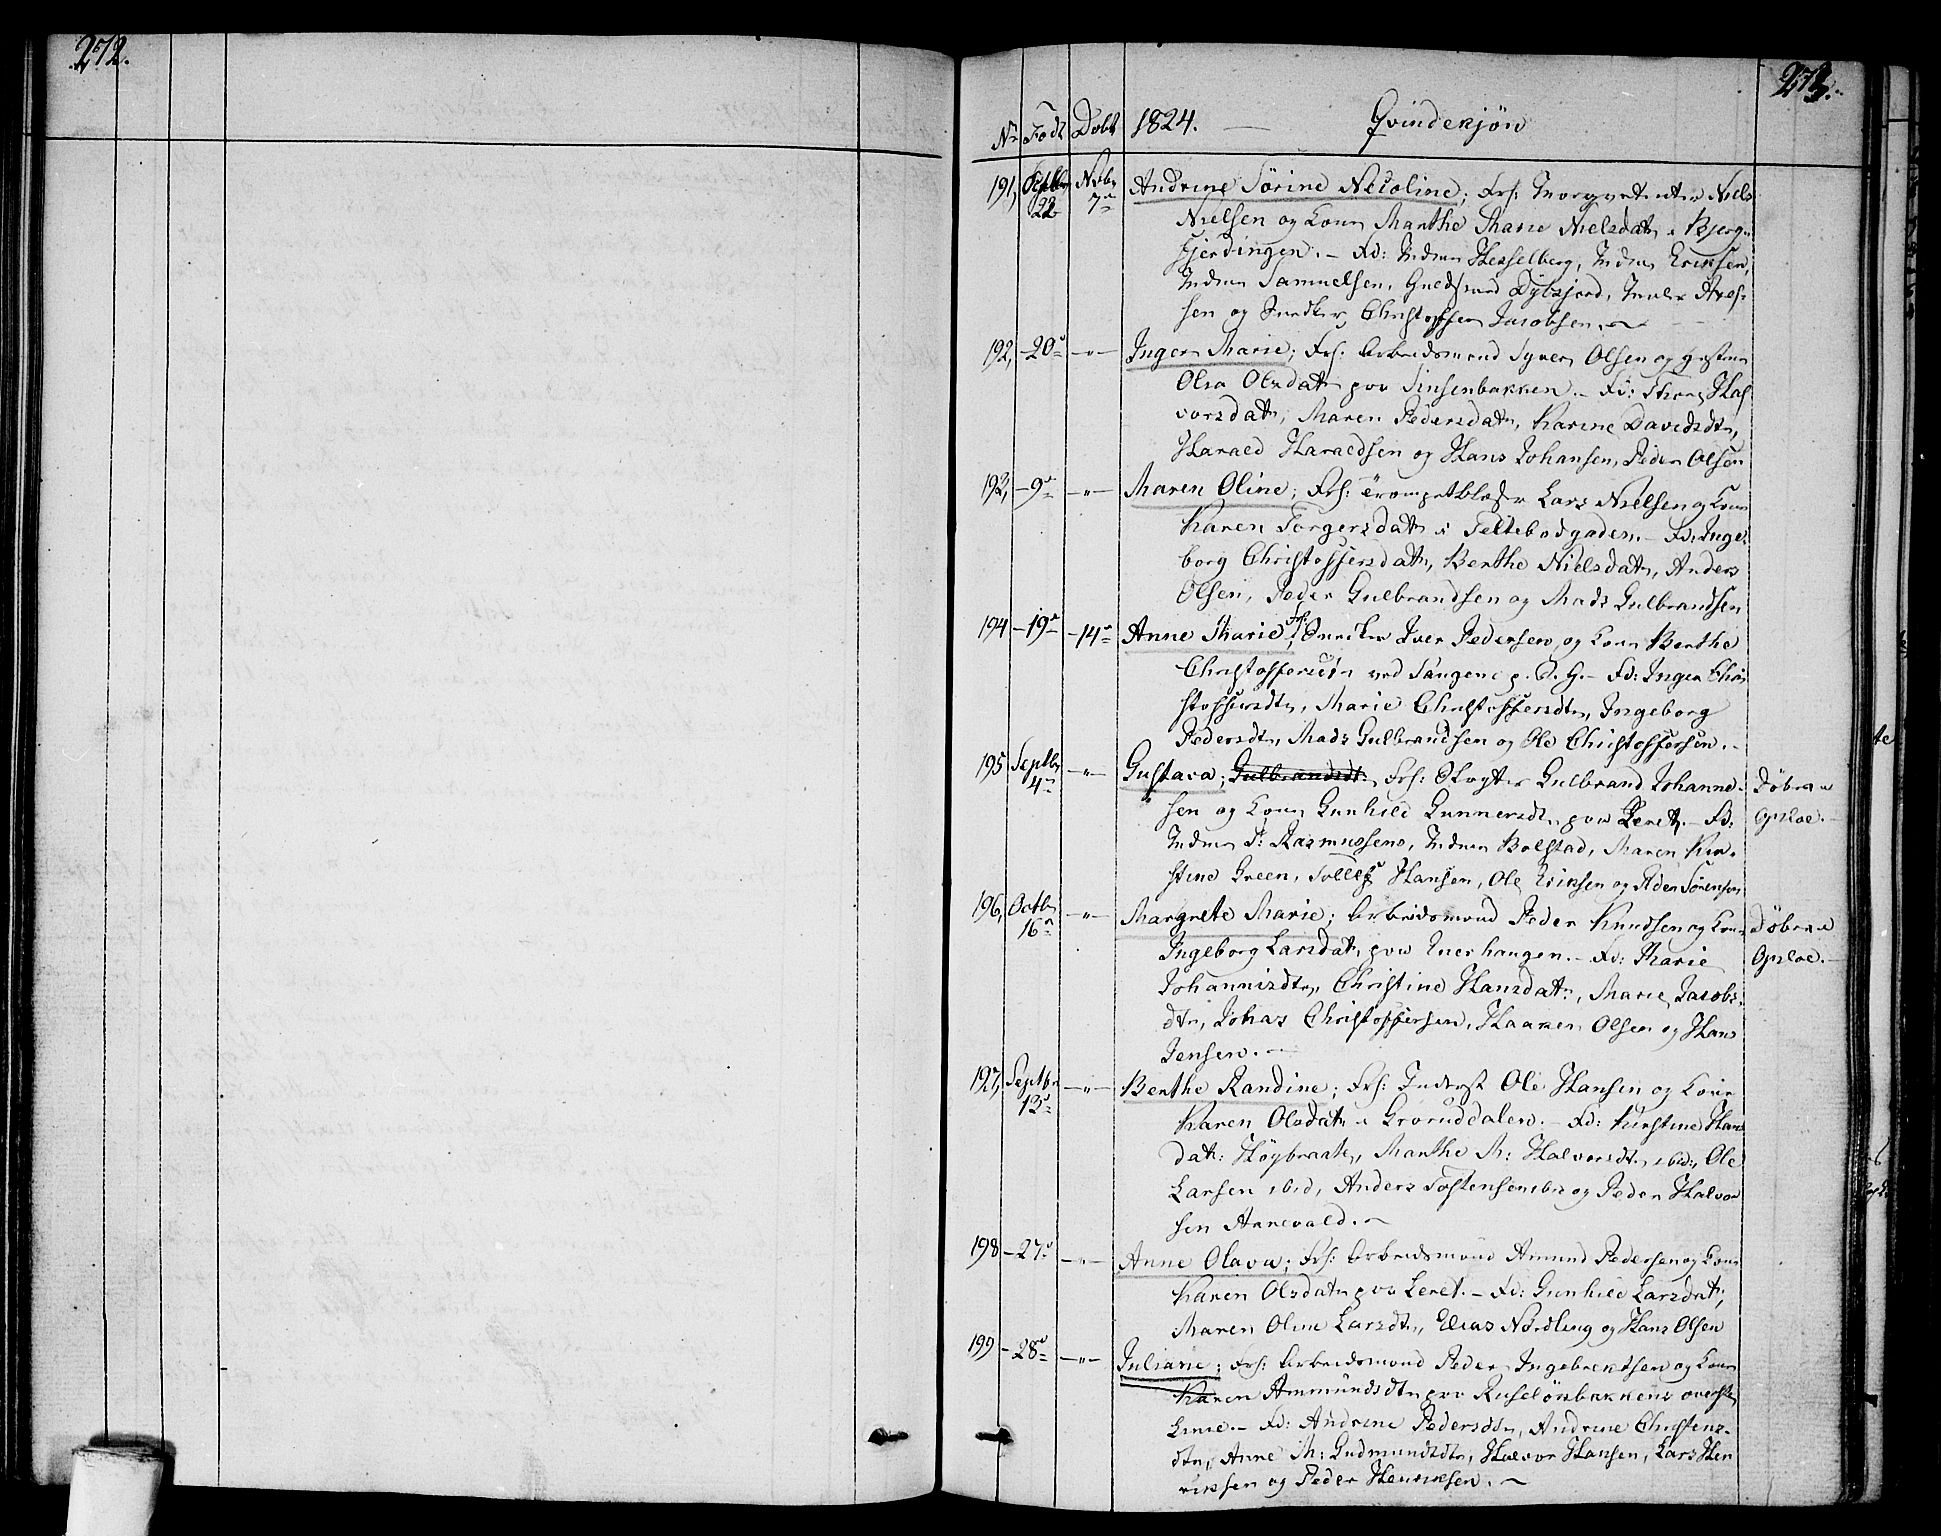 272.
273.
Nr. Født Døbt 1824. — Qvindekjøn
191, Septbr 22 Novbr 7de Andrine Sørine Nicoline; Frf: Niels
Nielsen og Kone Marthe Marie Nielsdatr i Bjerg-
fjerdingen. – Fd: Md: Hesselberg, Md: Eriksen,
Samuelsen, Dybsjord, Axel-
sen og Christoffer Jacobsen. –
192, – 20de – " – Inger Marie; Frf: Arbeidsmand Syver Olsen og
Olea Olsdatr paa Sinsenbakken. – Fd: Hal-
vorsdatr, Maren Pedersdatr, Karine Davidsdtr,
Harald Haraldsen og Hans Johansen, Peder Olsen
193, – 9de – " – Maren Oline; Frf: Trompetblæser Lars Nielsen og Kone
Karen Torgersdatr i Feltebodgaden. – Fd: Inge-
borg Christoffersdatr, Berthe Nielsdatr, Anders
Olsen, Peder Gulbrandsen og Mads Gulbrandsen
194 – 19de – 14de Anne Marie, Frf: Snedker Iver Pedersen og Kone Berthe
Christoffersdtr ved Tangen p. E. G. – Fd: Inger Chri-
stoffersdtr, Marie Christoffersdtr, Ingeborg
Pedersdtr, Mads Gulbrandsen og Ole Christoffersen. –
195 Septbr 4de – " – Gustava; Gulbrandsdt. Frf: Gulbrand Johanne-
sen og Kone Gunhild Gunnersdtr paa Leret. – Fd:
Rasmussens, Bolstad, Maren Kir-
stine Green, Tollef Hansen, Ole Eriksen og Peder Sørensen
Døbt i
Opsloe. –
196, Octbr 16de – " – Margrete Marie; Arbeidsmand Peder Knudsen og Kone
Ingeborg Larsdatr paa Enerhaugen. – Fd: Marie
Johannisdtr, Christine Hansdatr, Marie Jacobs-
dtr, Johas Christoffersen, Haaken Olsen og Hans
Jensen. –
Døbt i
Opsloe. –
197, Septbr 13de – " – Berthe Randine; Frf: Inderst Ole Hansen og Kone
Karen Olsdatr i Groruddalen. – Fd: Kirstine Hans-
dat: Høybraate, Marthe M: Halvorsdtr ibid:, Ole
Larsen ibid, Anders Tostensen ibid og Peder Halvor-
sen Arnevald. –
198 – 27de – " – Anne Olava; Frf: Arbeidsmand Amund Pedersen og Kone
Karen Olsdatr paa Leret. – Fd: Gunhild Larsdatr,
Maren Oline Larsdtr, Elias Nordling og Hans Olsen
199 – 28de – " – Juliane; Frf: Arbeidsmand Peder Ingebrektsen og Kone
Karen Ammundsdtr paa Ruseløkbakkens øverste
Linie. – Fd: Andrine Pedersdtr, Andrine Christens-
dtr, Anne M: Gudmundsdtr, Halvor Hansen, Lars Hen-
riksen og Peder Henriksen. –